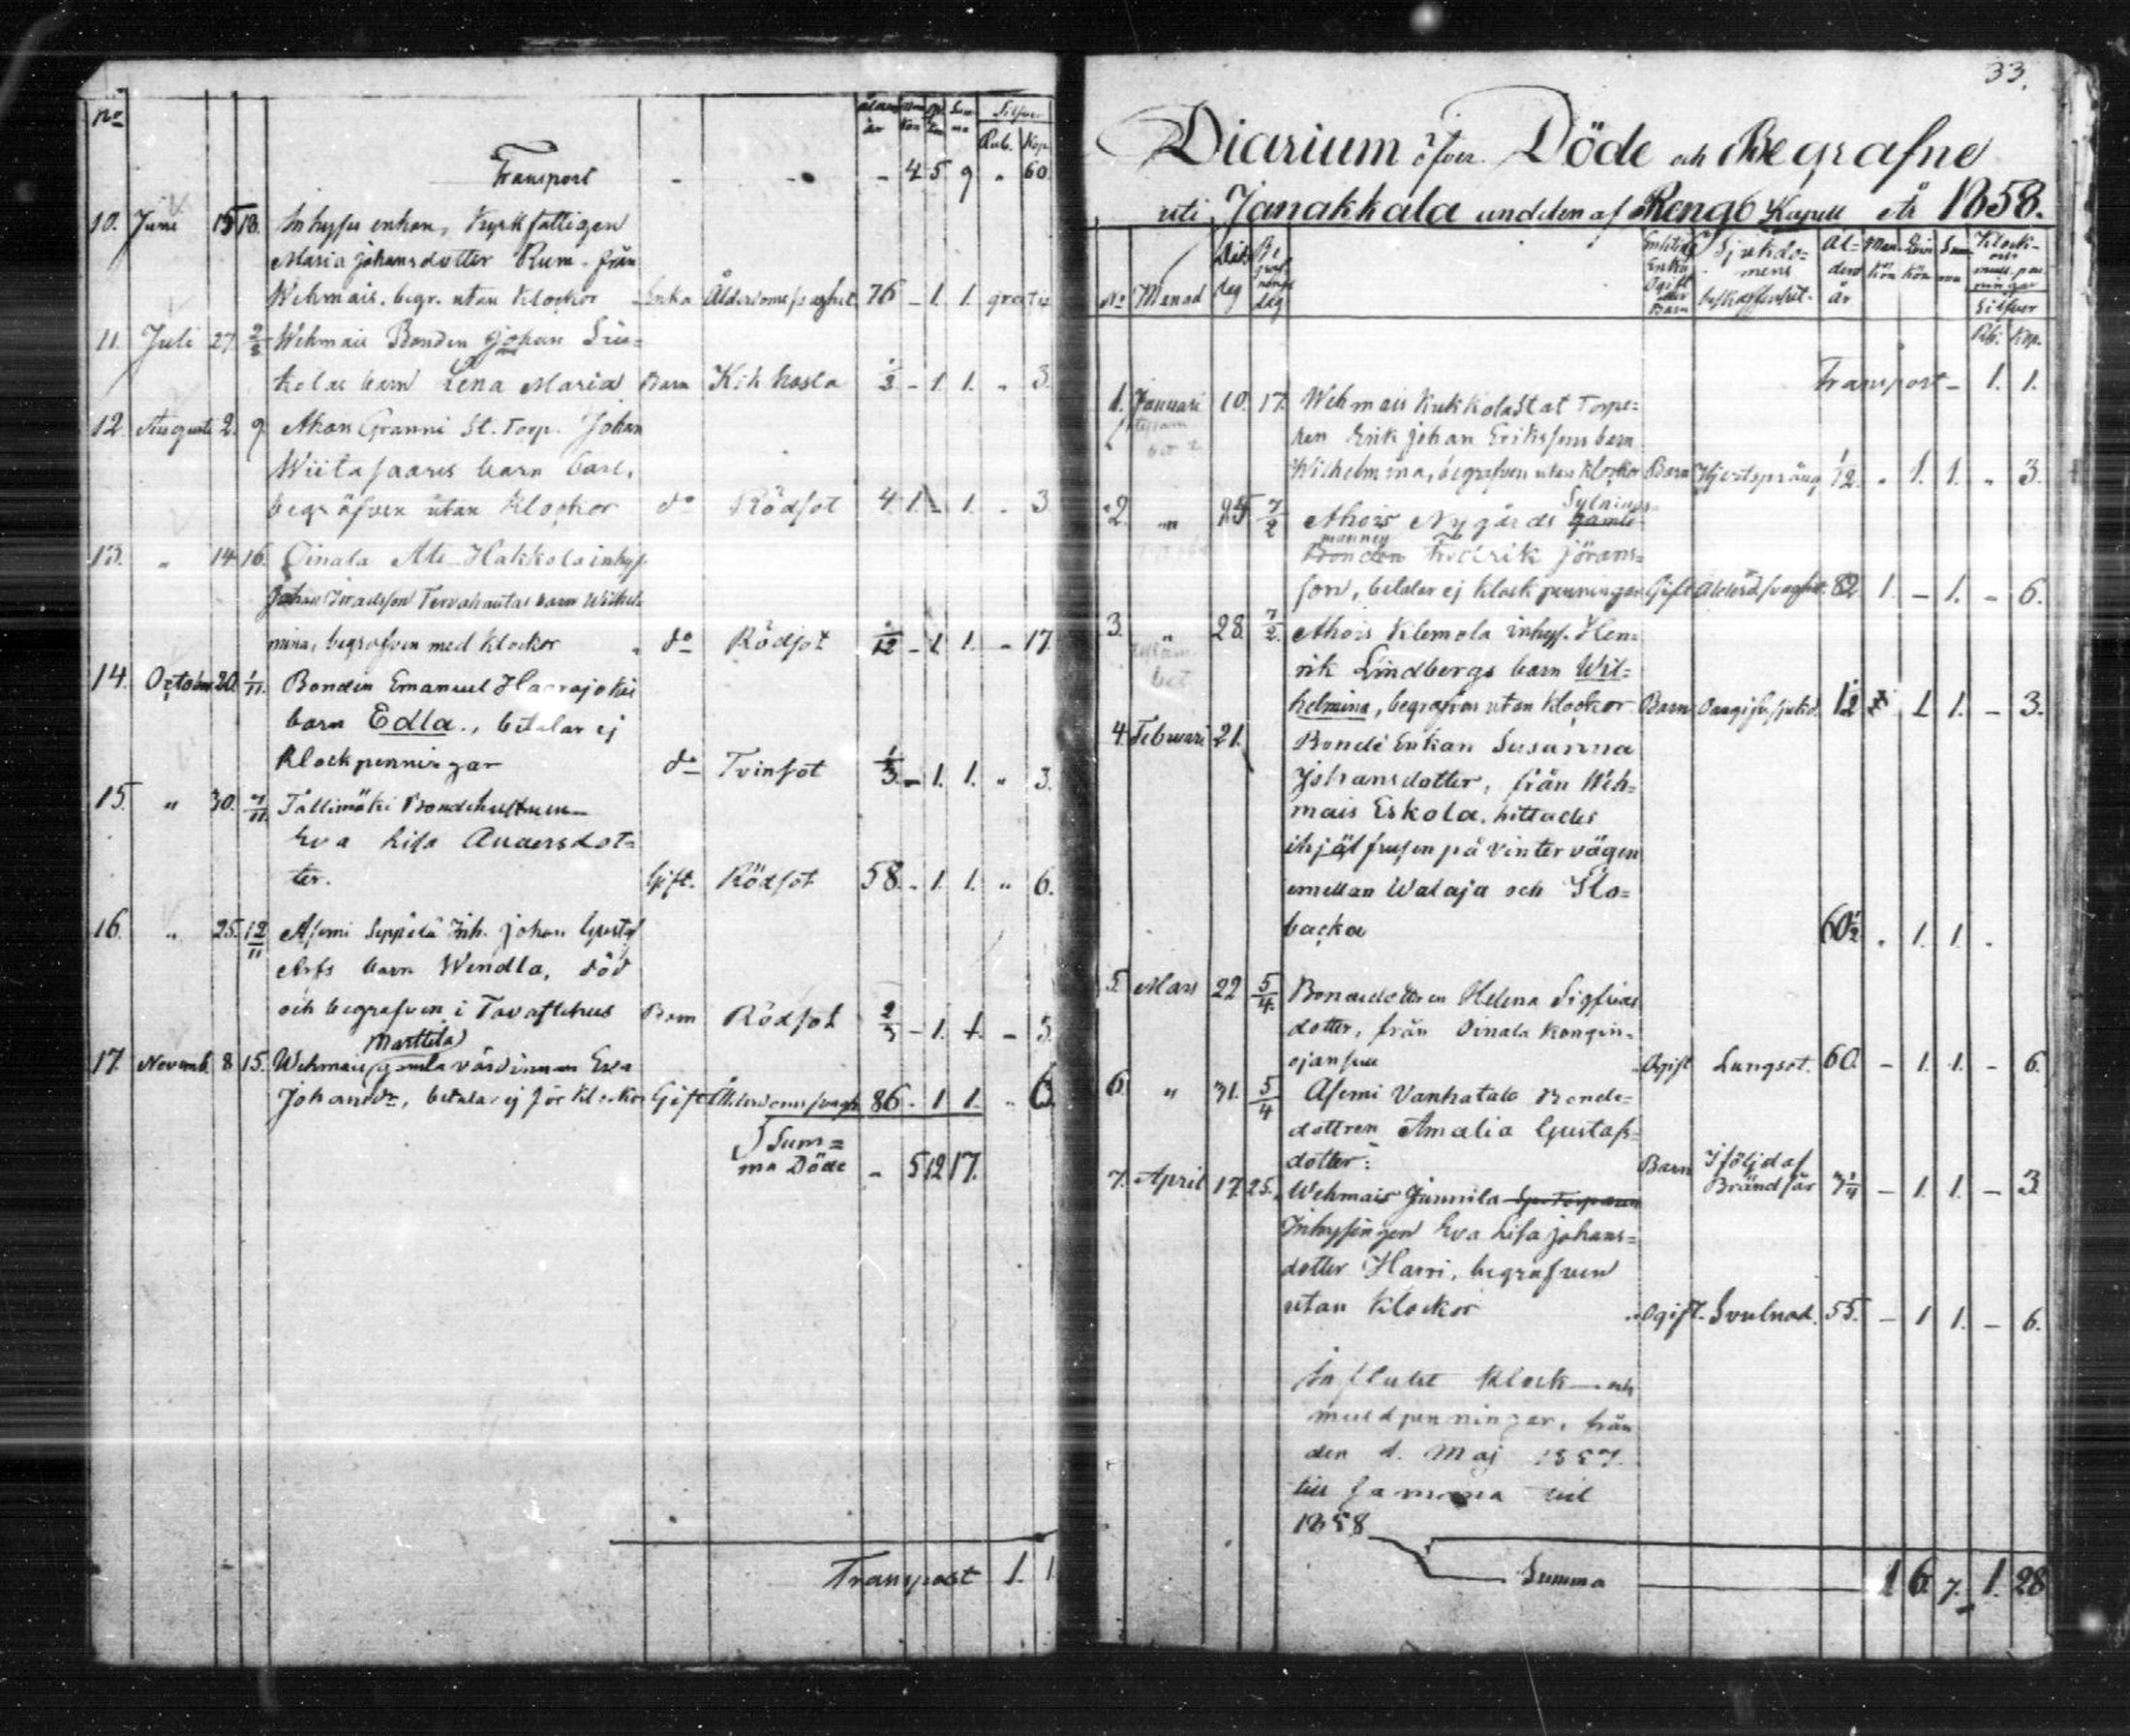 No ålder år Man Kön Qv. Kön Sum-ma Silfver
Rub. Kop.
Transport - - - 4 5 9 " 60.
10. Juni 15 18. Inhyses enkan, Kyrkfattigen
Maria Johansdotter Rum. från
Wehmais. begr. utan Klockor Enka Ålderdomssvaghet 76 - 1. 1. gratis
11. Juli 27 2/8 Wehmais Bonden Johan
kolas barn Lena Maria Barn Kikhosta 1/2 - 1. 1. " 3.
12. Augusti 2. 9 Ahois Granni St. Torp. Johan
Wiitasaaris barn Carl,
begrafven utan Klockor do Rödsot 4 1 - 1. - 3
13. " 14 16. Oinala Ate Hakkola inhys.
Johan Tervahautas barn Wilhel=
mina, begrafven med klockor do Rödsot 1/12 - 1. 1. - 17.
14. October 20. 1/11. Bonden Emanuel Haarajokis
barn Edla, betalar ej
Klockpenningar do Tvinsot 1/3 - 1. 1. " 3.
15. " 30. 7/11. Tällimäki Bondehustrun
Eva Lisa Andersdot=
ter. Gift. Rödsot 58. - 1. 1. " 6.
16. " 25. 12/11 Asemi Seppälä Inh. Johan Gustaf
barn Wendla, död
och begrafven i Tavastehus Barn Rödsot 2/3 - 1. 1. - 3.
Marttila
17. Novemb. 8 15. Wehmais gamla värdinnan Eva
Johansdr, betalar ej för Klockor Gift Ålderdomssvagh. 86 - 1 1. " 6.
Sum=
ma Döde - 5 12 17.
Transport 1. 1
33.
Diarium öfver Döde och Begrafne
uti Janakkala andelen af Rengo Kapell År 1858.
No Månad Död dag Be graf nings dag Enkling Enka Ogift eller Barn Sjukdo=mens beskaffenhet. Ål=ders år Man-kön Qvin kön Sum ma Klock- och mull-pen ningar
Silfver
Rb. Kop.
Transport - 1. 1.
1. Januari 10. 17. Wehmais Kukkola Stat Torpa=
ren Erik Johan Erikssons barn
Wilhelmina, begrafven utan klockor Barn Hjertsprång 1/12. " 1. 1. " 3.
Sytnings=
2. " 25 7/2 Ahois Nygårds gamle
mannen
Bonden Fredrik Jörans=
son, betalar ej klockpenningar Gift Ålderd.svaghet. 82 1. - 1. - 6.
3. " 28. 7/2. Ahois Klemola inhys. Hen=
rik Lindbergs barn Wil=
helmina, begrafven utan klockor. Barn 1/2 1 1. - 3.
4. Februari 21. Bonde Enkan Susanna
Johansdotter, från Weh=
mais Eskola, hittades
ihjälfrusen på vintervägen
emellan Walaja och Ilo=
backa 60 1/2 . 1. 1. .
5. Mars 22 5/4. Bondedottren Helena Sigfrids
dotter, från Oinala Kongin=
ojansuu Ogift Lungsot. 60. - 1. 1. - 6.
6. " 31. 5/4 Asemi Vanhatalo Bonde=
dottren Amalia Gustafs=
dotter: Barn I följd af
Brändsår 3 1/4 - 1. 1. - 3.
7. April 17. 25. Wehmais Junnila Sp. Torparen
Inhysingen Eva Lisa Johans=
dotter Harri, begrafven
utan Klockor Ogift. Svulnad. 55. - 1 1. - 6.
Influtit Klock- och
mullpenningar, från
den 1. Maj 1857.
till samma tid
1858
Summa 1 6 7. 1. 28